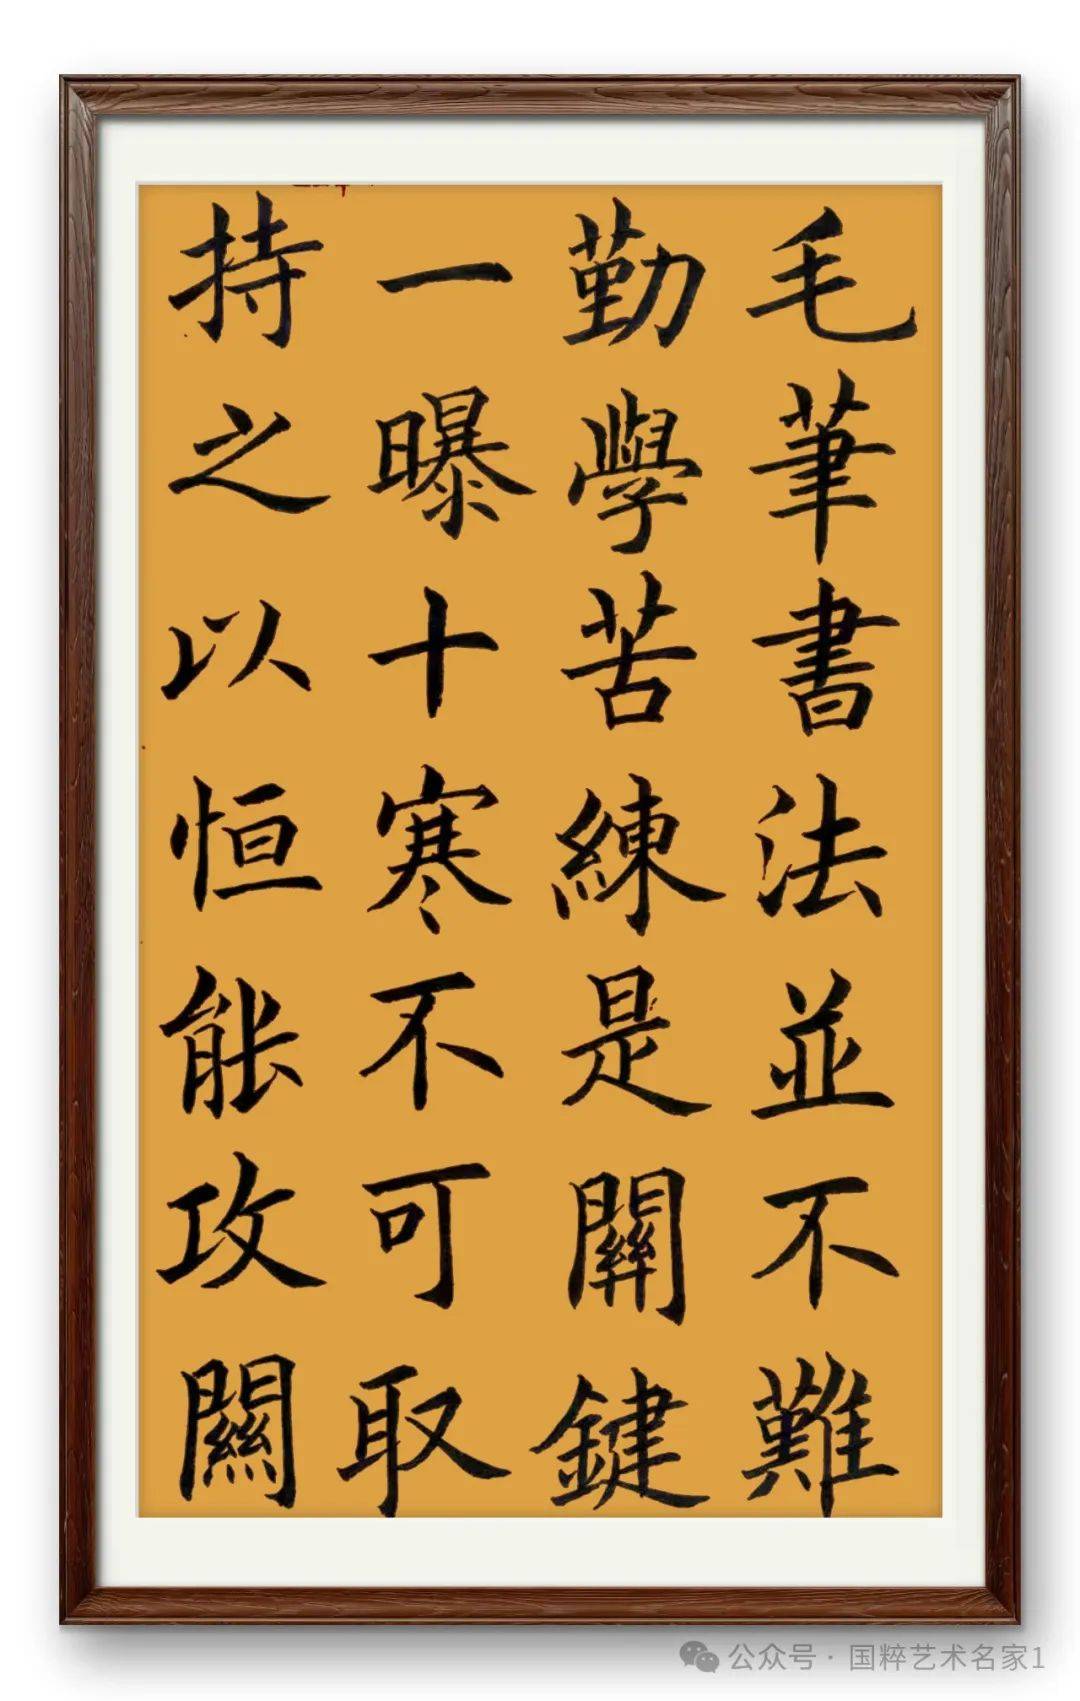 毛筆書法並不難
勤學苦練是關鍵
一曝十寒不可取
持之以恒能攻關
公众号 · 国粹艺术名家1